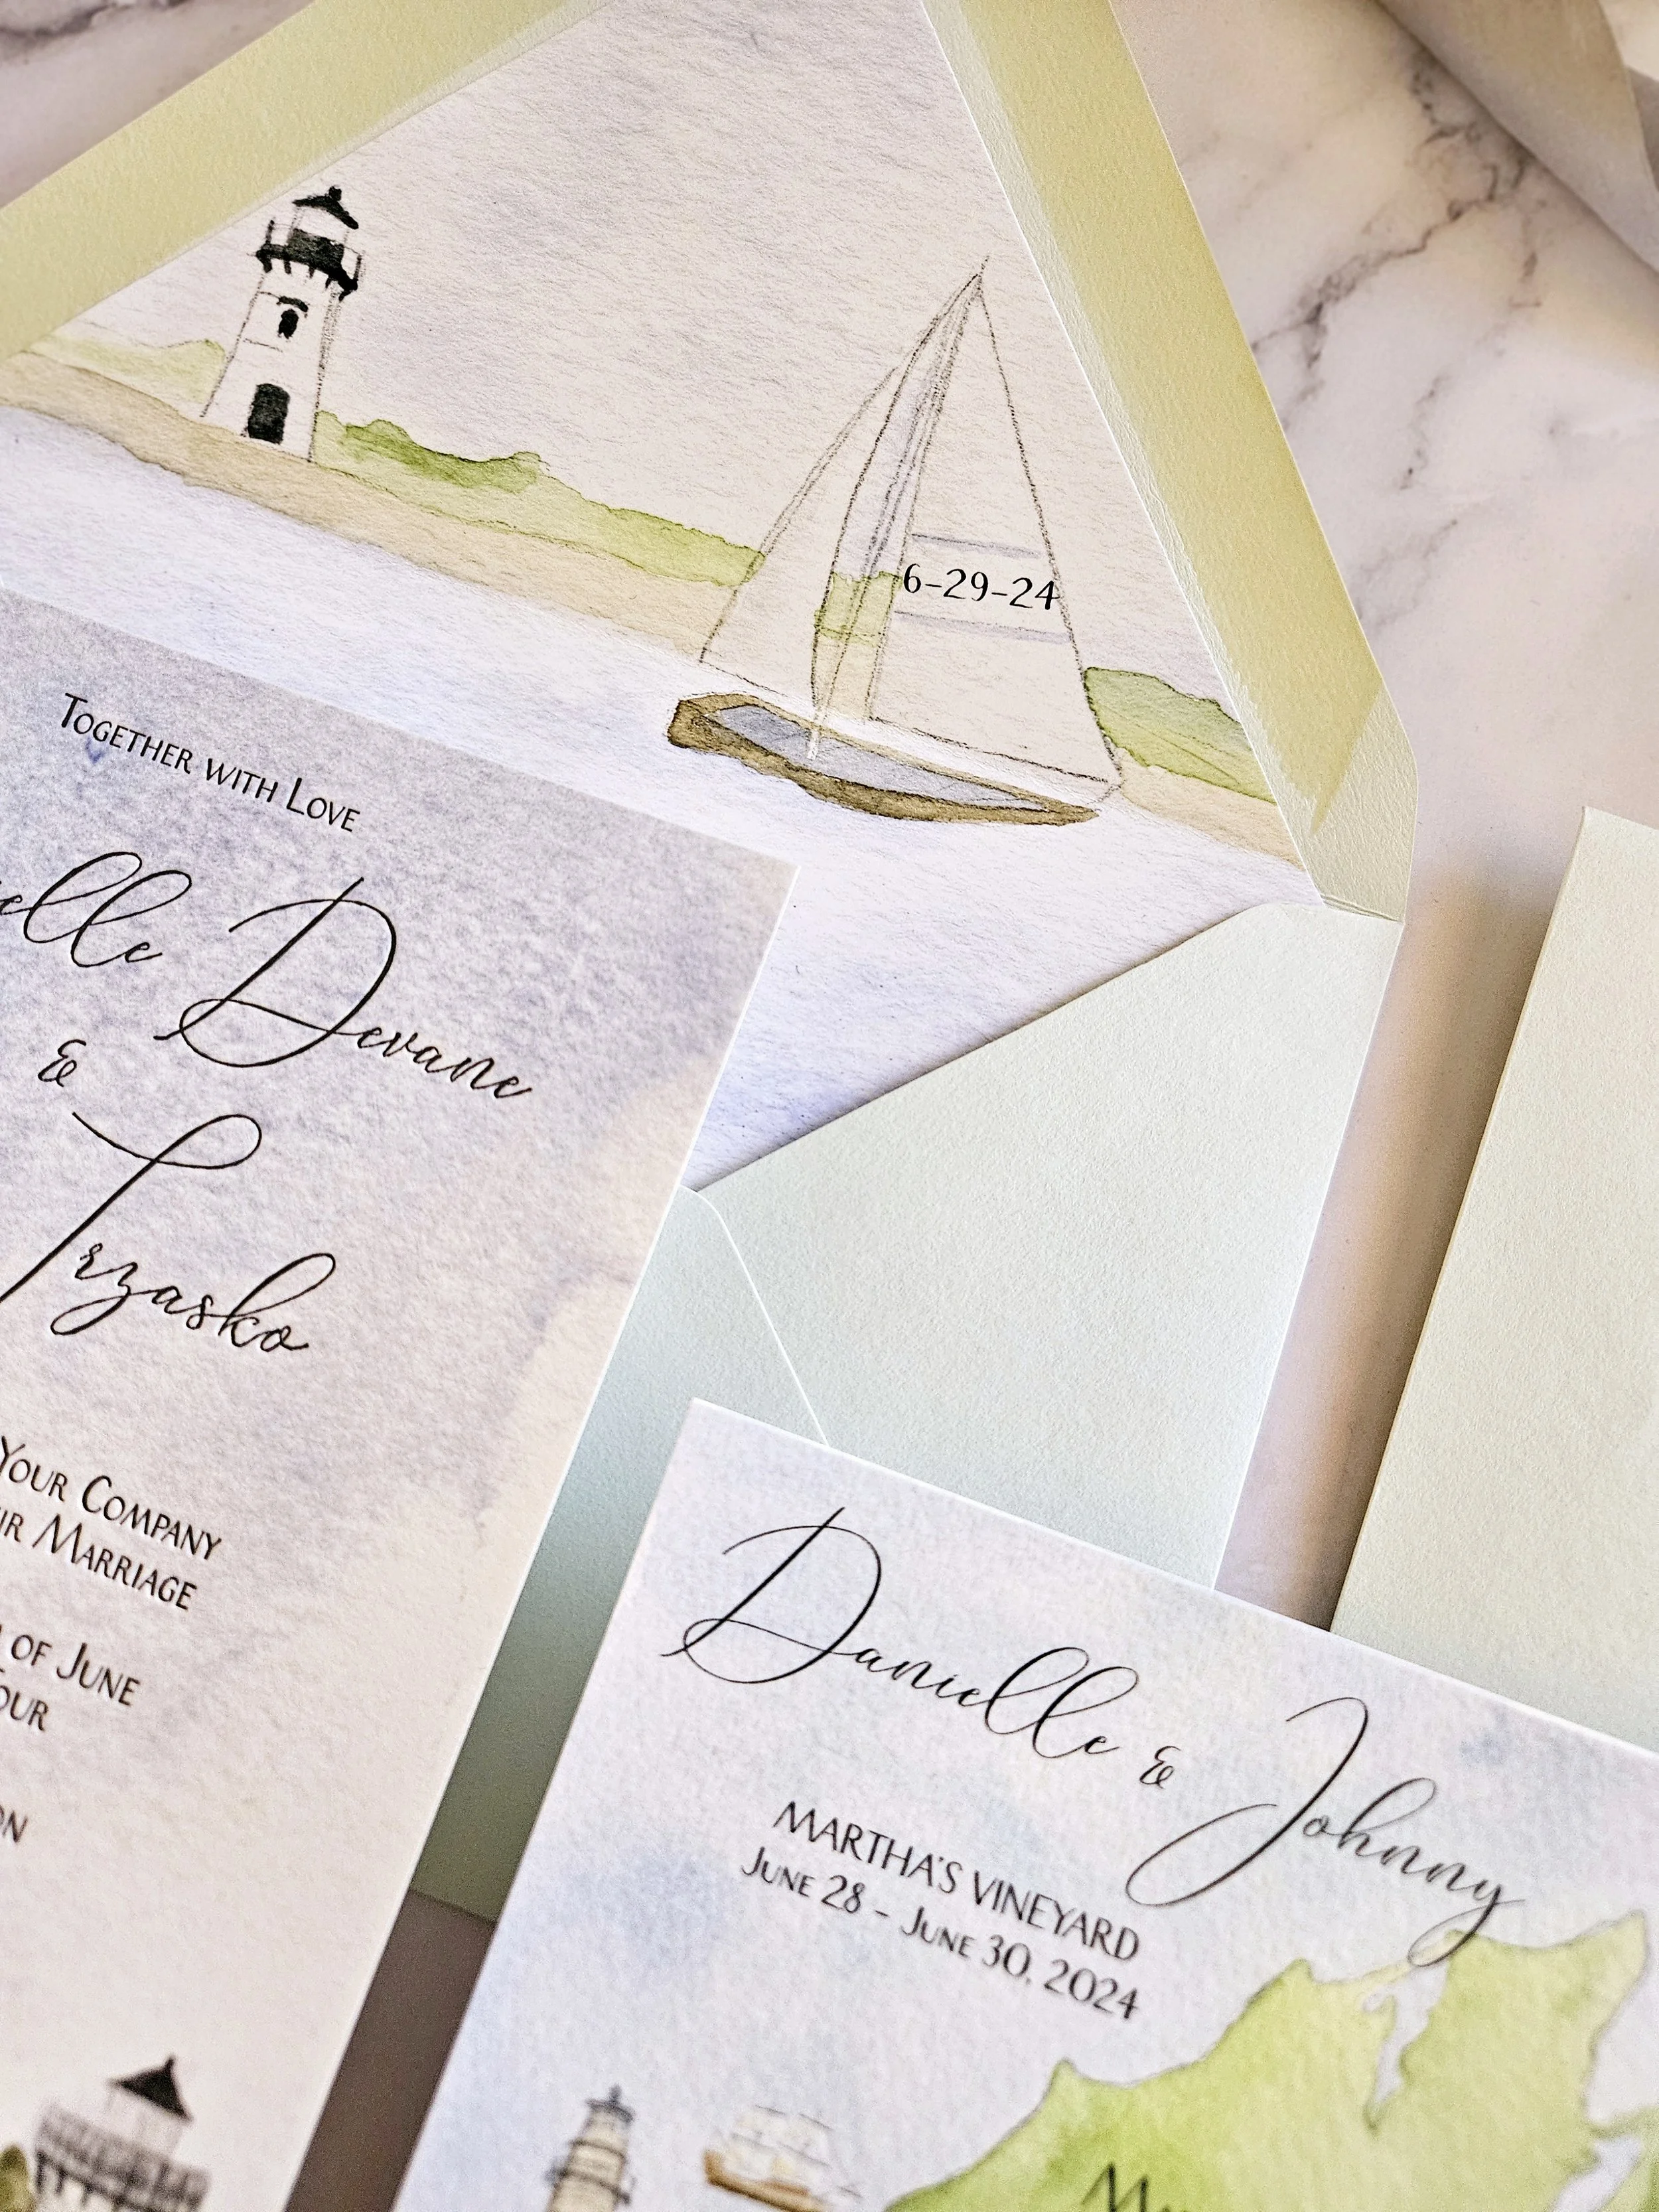 6-29-24
Together with Love
elle Devane
&
Trzasko
Your Company
Marriage
of June
Danielle & Johnny
MARTHA'S VINEYARD
June 28 - June 30, 2024